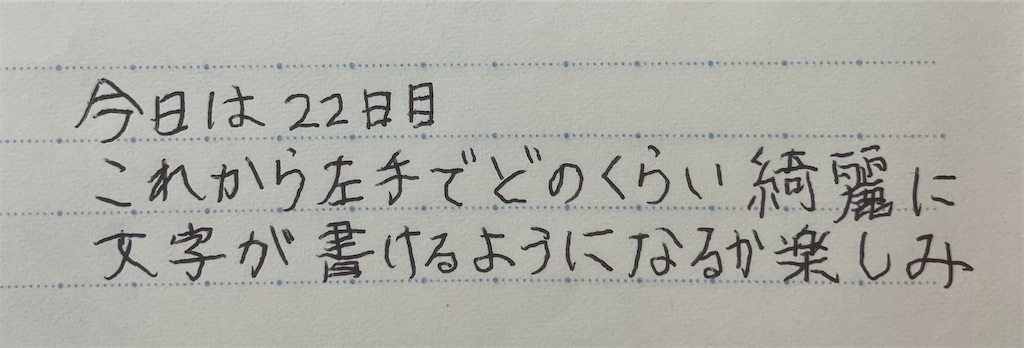 今日は22日目
これから左手でどのくらい綺麗に
文字が書けるようになるか楽しみ